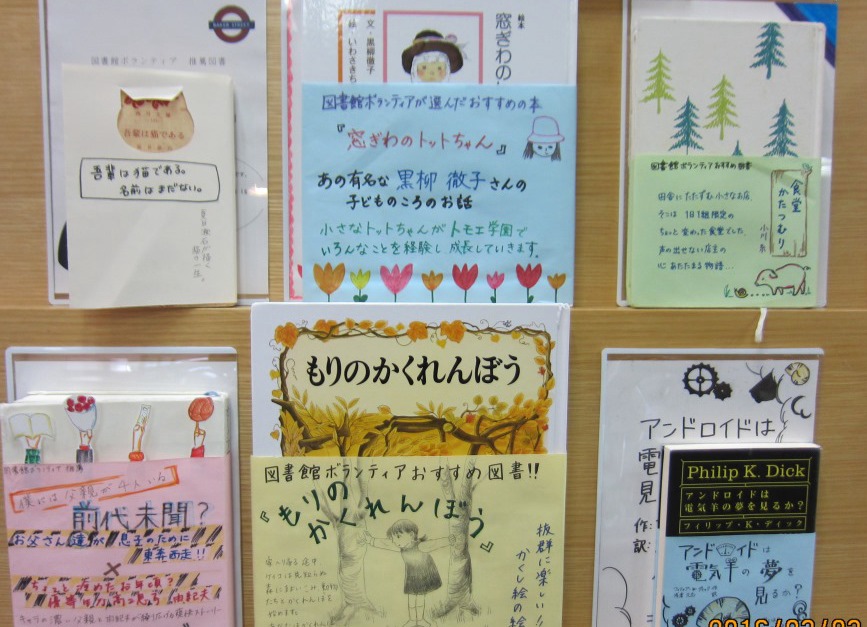 BAKER STREET
図書館ボランティア 推薦図書
吾輩は猫である
吾輩は猫である。
名前はまだない。
絵本
窓ぎわの
文・黒柳徹子
絵・いわさきち
図書館ボランティアが選んだおすすめの本
『窓ぎわのトットちゃん』
あの有名な 黒柳 徹子さんの
子どものころのお話
小さなトットちゃんがトモエ学園で
いろんなことを経験し成長していきます。
図書館ボランティアおすすめ図書
食堂
かたつむり
小川 糸
田舎にたたずむ小さなお店。
そこは 1日1組限定の
ちょっと変わった食堂でした。
声の出せない店主の
心あたたまる物語…
図書館ボランティア 推薦
僕には父親が4人いる
前代未聞?
お父さん達が 息子のために
東奔西走!!
×
ちょっと冷めたお年頃?
優等生の高二男子 由紀夫
もりのかくれんぼう
図書館ボランティアおすすめ図書!!
『もりの
かくれんぼう』
抜群に楽しい!
かくし絵の絵
アンドロイドは
電
見
作:
訳:
Philip K. Dick
アンドロイドは
電気羊の夢を見るか?
フィリップ・K・ディック
アンドロイドは
電気羊の夢を
見るか?